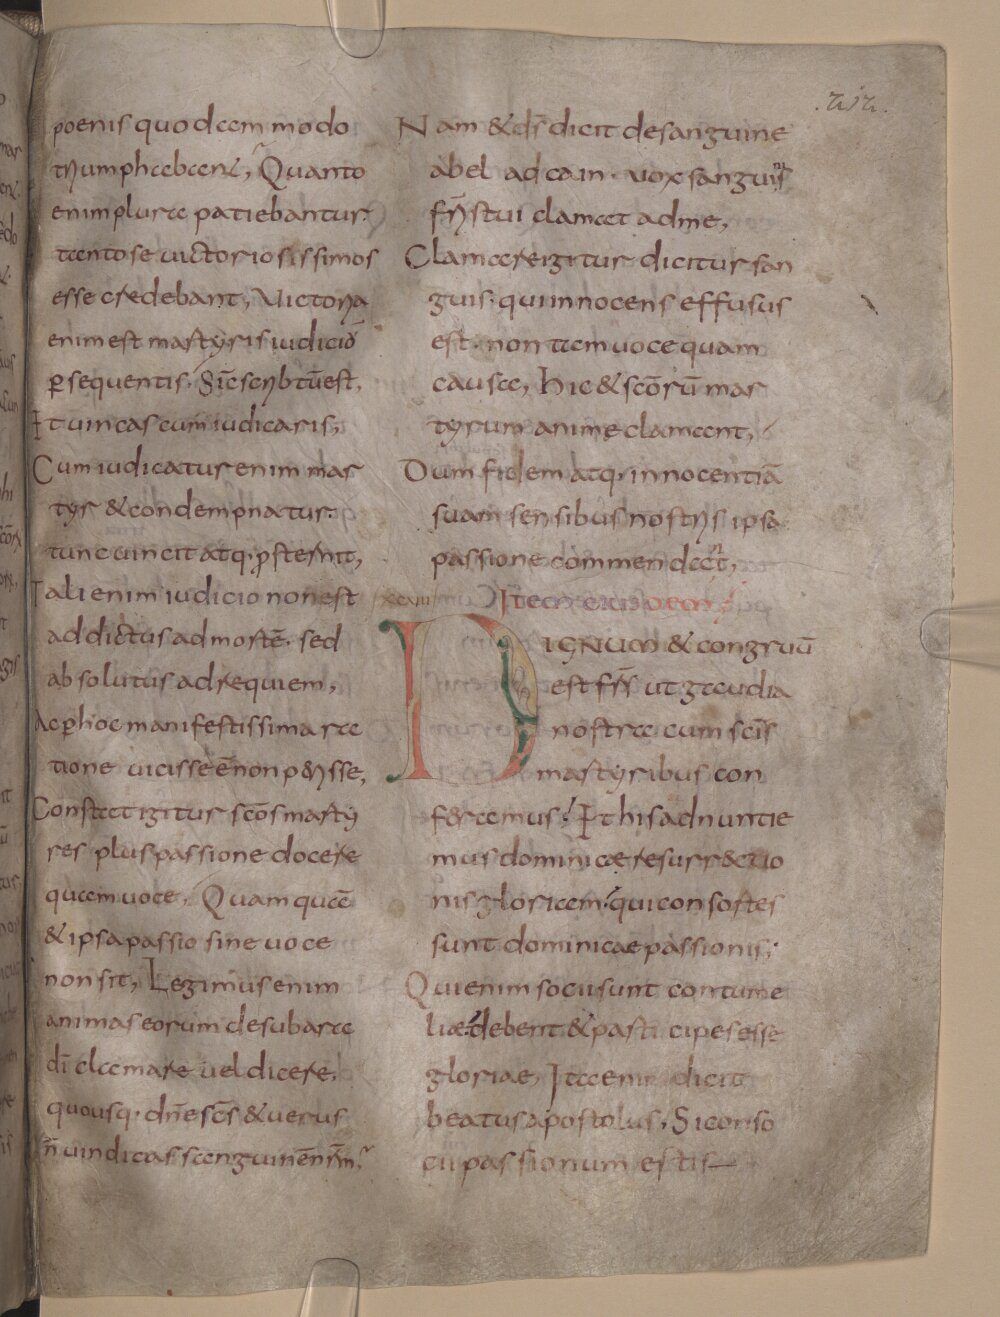 .212.
poenis quodam modo
triumphabant, Quanto
enim plura patiebantur
tanto se uictoriosissimos
esse credebant, Victoria
enim est martyris iudiciō
ꝑsequentis. Sic̄ scribtū est,
Et uincas cum iudicaris,
Cum iudicatur enim mar
tyr & condempnatur.
tunc uincit atq· ꝓsternit,
Tali enim iudicio non est
addictus ad mortē. sed
absolutus ad requiem,
Ac ꝑ hoc manifestissima ra
tione uicisse ē non p&risse,
Constat igitur scōs marty
res plus passione docere
quam uoce, Quamquā
& ipsa passio sine uoce
non sit, Legimus enim
animas eorum de sub ara
dī clamare uel dicere,
quousq· dn̄e sc̄s & uerus
n̄ uindicas sanguinē nr̄m
Nam & ds̄ dicit de sanguine
abel ad cain. uox sanguinis
fr̄is tui clamat ad me,
Clamare igitur dicitur san
guis. qui innocens effusus
est. non tam uoce quam
causa, Hic & scōrū mar
tyrum anime clamant,
Dum fidem atq· innocentiā
suam sensibus nostris ipsa
passione commendant,
xcuiii Item eius
DIGNUM & congruū
est frr̄s ut gaudia
nostra cum sc̄is
martyribus con
feramus. Et his adnuntie
mus dominicæ resurr&ctio
nis gloriam. qui consortes
sunt dominicae passionis;
Qui enim socii sunt contume
liæ. debent & participes esse
gloriae, Ita enim dicit
beatus apostolus, Si conso
cii passionum estis